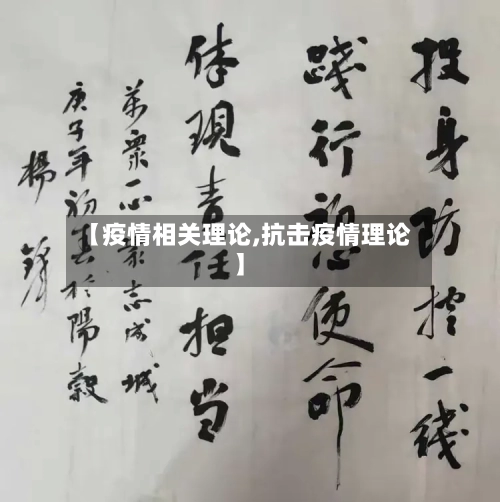 投身防控一线
践行初心使命
体现责任担当
万众一心众志成城
庚子年初春於陽穀
楊鋒
【疫情相关理论,抗击疫情理论
】